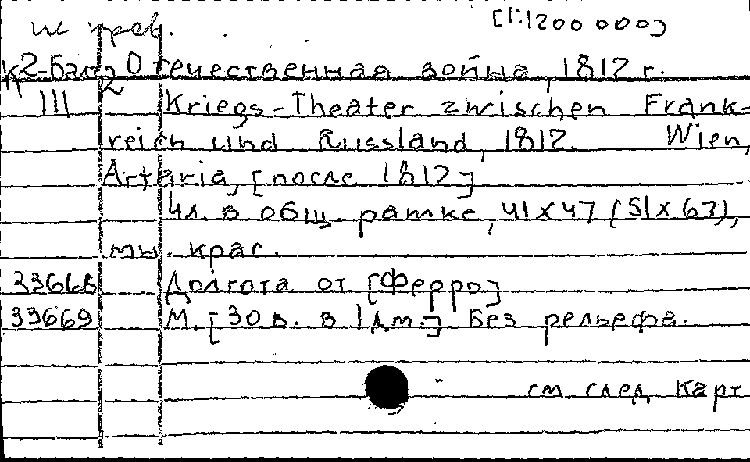 [1:1200 000]
Отечественная война, 1812 г.
III Kriegs-Theater zwischen Frank-
reich und Russland, 1812. Wien,
Artaria, [после 1812]
4 л. в общ. рамке, 41 x 47 (51 x 63),
крас.
33668 Долгота от [Ферро]
33669 М. [30 в. в 1 дм.] Без рельефа.
см. след. карт